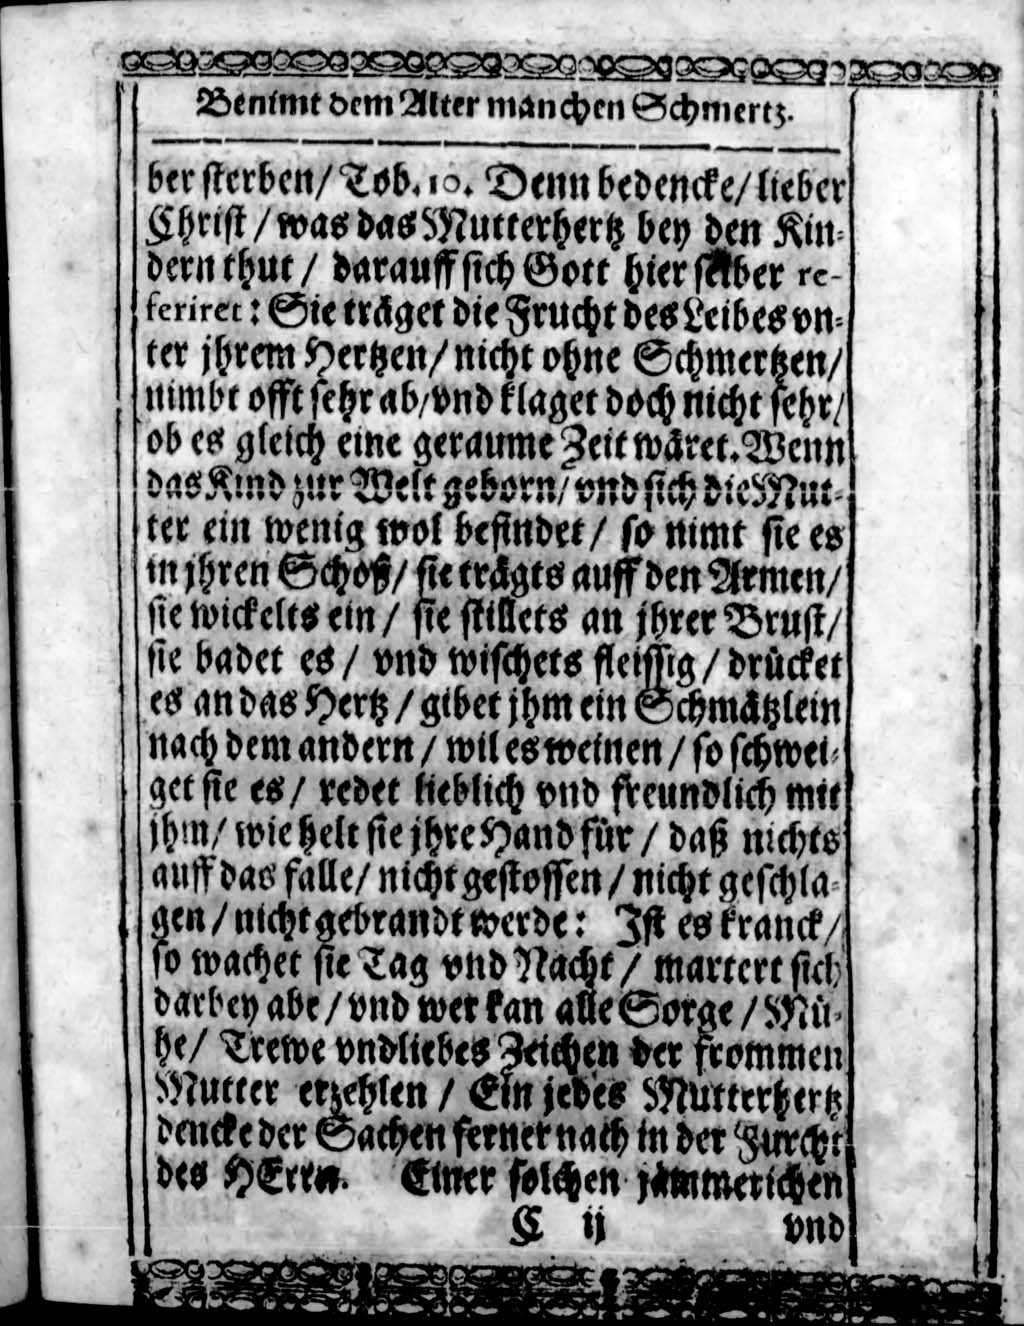 Benimt dem Alter manchen Schmertz.
ber sterben/ Tob. 10. Denn bedencke/ lieber
Christ / was das Mutterhertz bey den Kin-
dern thut / darauff sich Gott hier selber re-
feriret: Sie träget die Frucht des Leibes vn-
ter jhrem Hertzen/ nicht ohne Schmertzen/
nimbt offt sehr ab/vnd klaget doch nicht sehr/
ob es gleich eine geraume Zeit wäret. Wenn
das Kind zur Welt geborn/ vnd sich die Mut-
ter ein wenig wol befindet / so nimt sie es
in jhren Schoß/ sie trägts auff den Armen/
sie wickelts ein / sie stillets an jhrer Brust/
sie badet es / vnd wischets fleissig / drücket
es an das Hertz / gibet jhm ein Schmätzlein
nach dem andern / wil es weinen / so schwei-
get sie es / redet lieblich vnd freundlich mit
jhm/ wie helt sie jhre Hand für / daß nichts
auff das falle/ nicht gestossen / nicht geschla-
gen / nicht gebrandt werde: Ist es kranck/
so wachet sie Tag vnd Nacht / martert sich
darbey abe / vnd wer kan alle Sorge / Mü-
he/ Trewe vnd liebes Zeichen der frommen
Mutter erzehlen / Ein jedes Mutterhertz
dencke der Sachen ferner nach in der Furcht
des HErrn. Einer solchen jämmerichen
C ij vnd